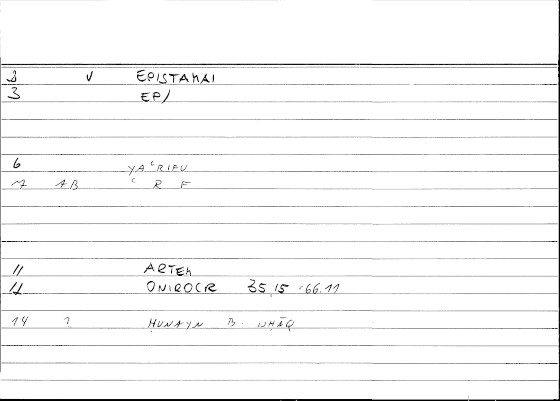 2 V EPISTAMAI
3 EP/
6 YAʿRIFU
7 AB ʿ R F
11 ARTEM
12 ONIROCR 35,15 66.11
14 ? HUNAYN B. ISHĀQ